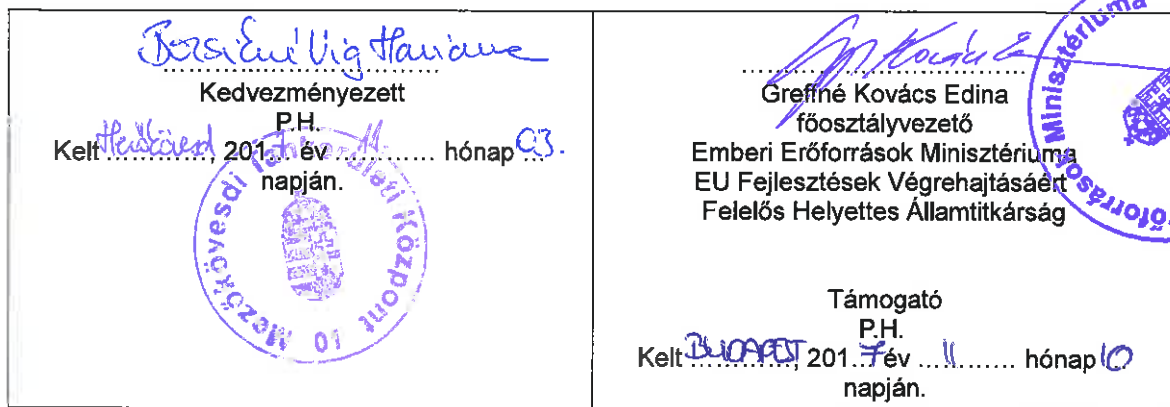 Kedvezményezett
P.H.
Kelt Mezőkövesd, 2017. év 11. hónap 03.
napján.
Mezőkövesdi Tankerületi Központ 10
01
Grefiné Kovács Edina
főosztályvezető
Emberi Erőforrások Minisztériuma
EU Fejlesztések Végrehajtásáért
Felelős Helyettes Államtitkárság
Minisztériuma
Támogató
P.H.
Kelt BUDAPEST, 2017 év 11 hónap 10
napján.